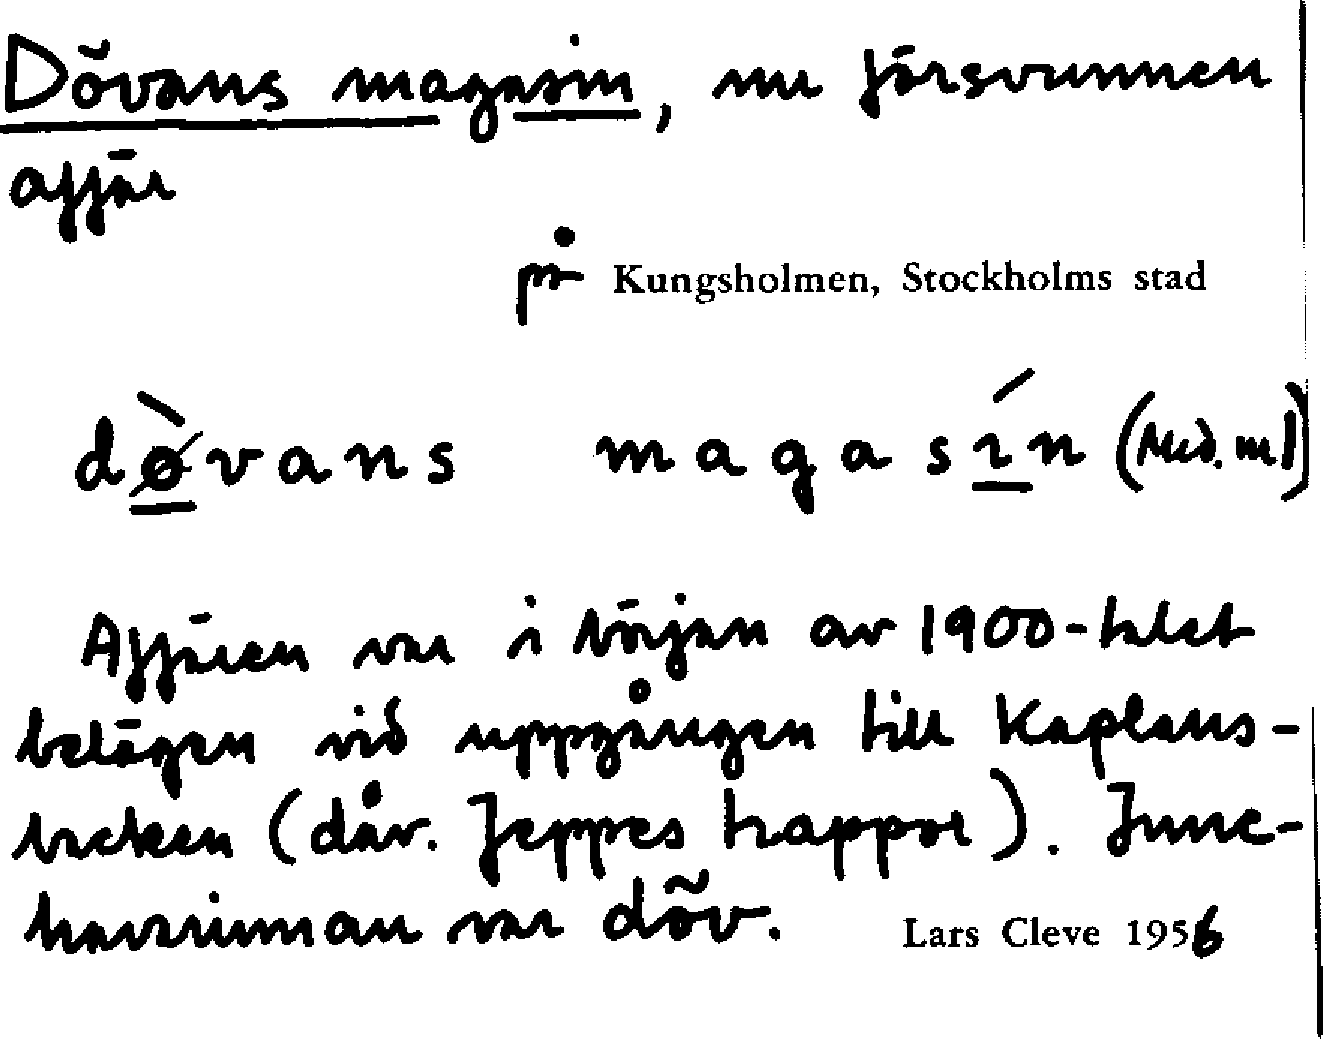 Dövans magasin, nu försvunnen
affär
på Kungsholmen, Stockholms stad
dø̀vans magasín (Med. ml)
Affären var i början av 1900-talet
belägen vid uppgången till Kaplans-
backen (dåv. Jeppes trappor). Inne-
havarinnan var döv. Lars Cleve 1956